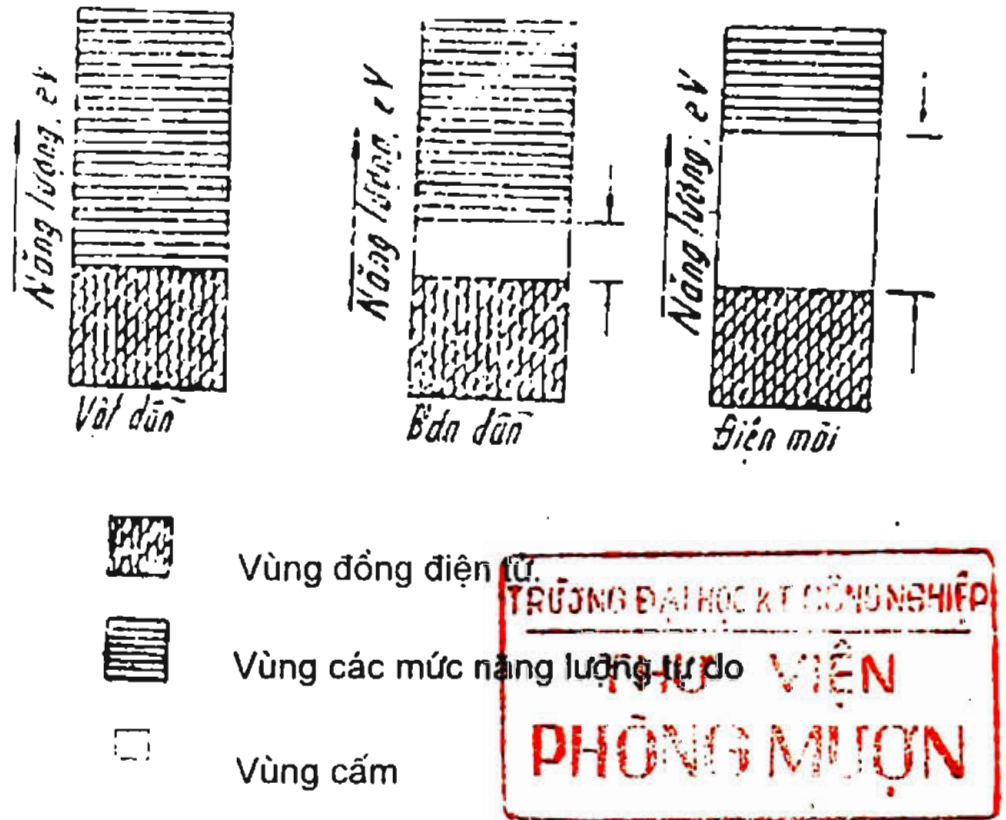 Năng lượng, eV
Năng lượng, eV
Năng lượng, eV
Vật dẫn
Bán dẫn
Điện môi
Vùng đồng điện tử.
Vùng các mức năng lượng tự do
Vùng cấm
TRƯỜNG ĐẠI HỌC KT CÔNG NGHIỆP
THƯ VIỆN
PHÒNG MƯỢN